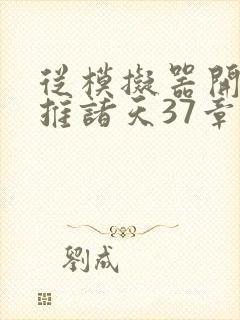 從模擬器開
推諸天37章
劉成